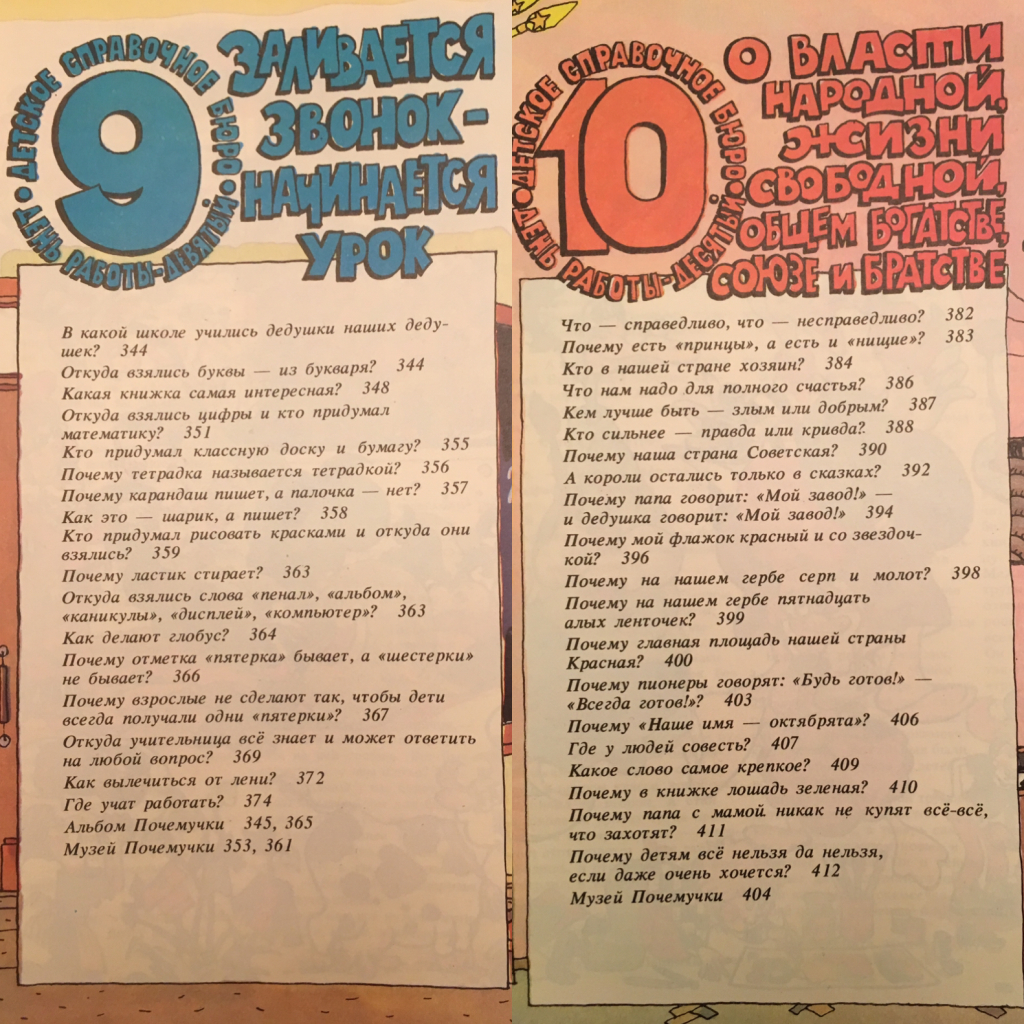 ДЕТСКОЕ СПРАВОЧНОЕ БЮРО • ДЕНЬ РАБОТЫ-ДЕВЯТЫЙ •
9
ЗАЛИВАЕТСЯ
ЗВОНОК-
НАЧИНАЕТСЯ
УРОК
В какой школе учились дедушки наших деду-
шек? 344
Откуда взялись буквы — из букваря? 344
Какая книжка самая интересная? 348
Откуда взялись цифры и кто придумал
математику? 351
Кто придумал классную доску и бумагу? 355
Почему тетрадка называется тетрадкой? 356
Почему карандаш пишет, а палочка — нет? 357
Как это — шарик, а пишет? 358
Кто придумал рисовать красками и откуда они
взялись? 359
Почему ластик стирает? 363
Откуда взялись слова «пенал», «альбом»,
«каникулы», «дисплей», «компьютер»? 363
Как делают глобус? 364
Почему отметка «пятерка» бывает, а «шестерки»
не бывает? 366
Почему взрослые не сделают так, чтобы дети
всегда получали одни «пятерки»? 367
Откуда учительница всё знает и может ответить
на любой вопрос? 369
Как вылечиться от лени? 372
Где учат работать? 374
Альбом Почемучки 345, 365
Музей Почемучки 353, 361
ДЕТСКОЕ СПРАВОЧНОЕ БЮРО • ДЕНЬ РАБОТЫ-ДЕСЯТЫЙ •
10
О ВЛАСТИ
НАРОДНОЙ,
ЖИЗНИ
СВОБОДНОЙ,
ОБЩЕМ БОГАТСТВЕ,
СОЮЗЕ И БРАТСТВЕ
Что — справедливо, что — несправедливо? 382
Почему есть «принцы», а есть и «нищие»? 383
Кто в нашей стране хозяин? 384
Что нам надо для полного счастья? 386
Кем лучше быть — злым или добрым? 387
Кто сильнее — правда или кривда? 388
Почему наша страна Советская? 390
А короли остались только в сказках? 392
Почему папа говорит: «Мой завод!» —
и дедушка говорит: «Мой завод!» 394
Почему мой флажок красный и со звездоч-
кой? 396
Почему на нашем гербе серп и молот? 398
Почему на нашем гербе пятнадцать
алых ленточек? 399
Почему главная площадь нашей страны
Красная? 400
Почему пионеры говорят: «Будь готов!» —
«Всегда готов!»? 403
Почему «Наше имя — октябрята»? 406
Где у людей совесть? 407
Какое слово самое крепкое? 409
Почему в книжке лошадь зеленая? 410
Почему папа с мамой никак не купят всё-всё,
что захотят? 411
Почему детям всё нельзя да нельзя,
если даже очень хочется? 412
Музей Почемучки 404